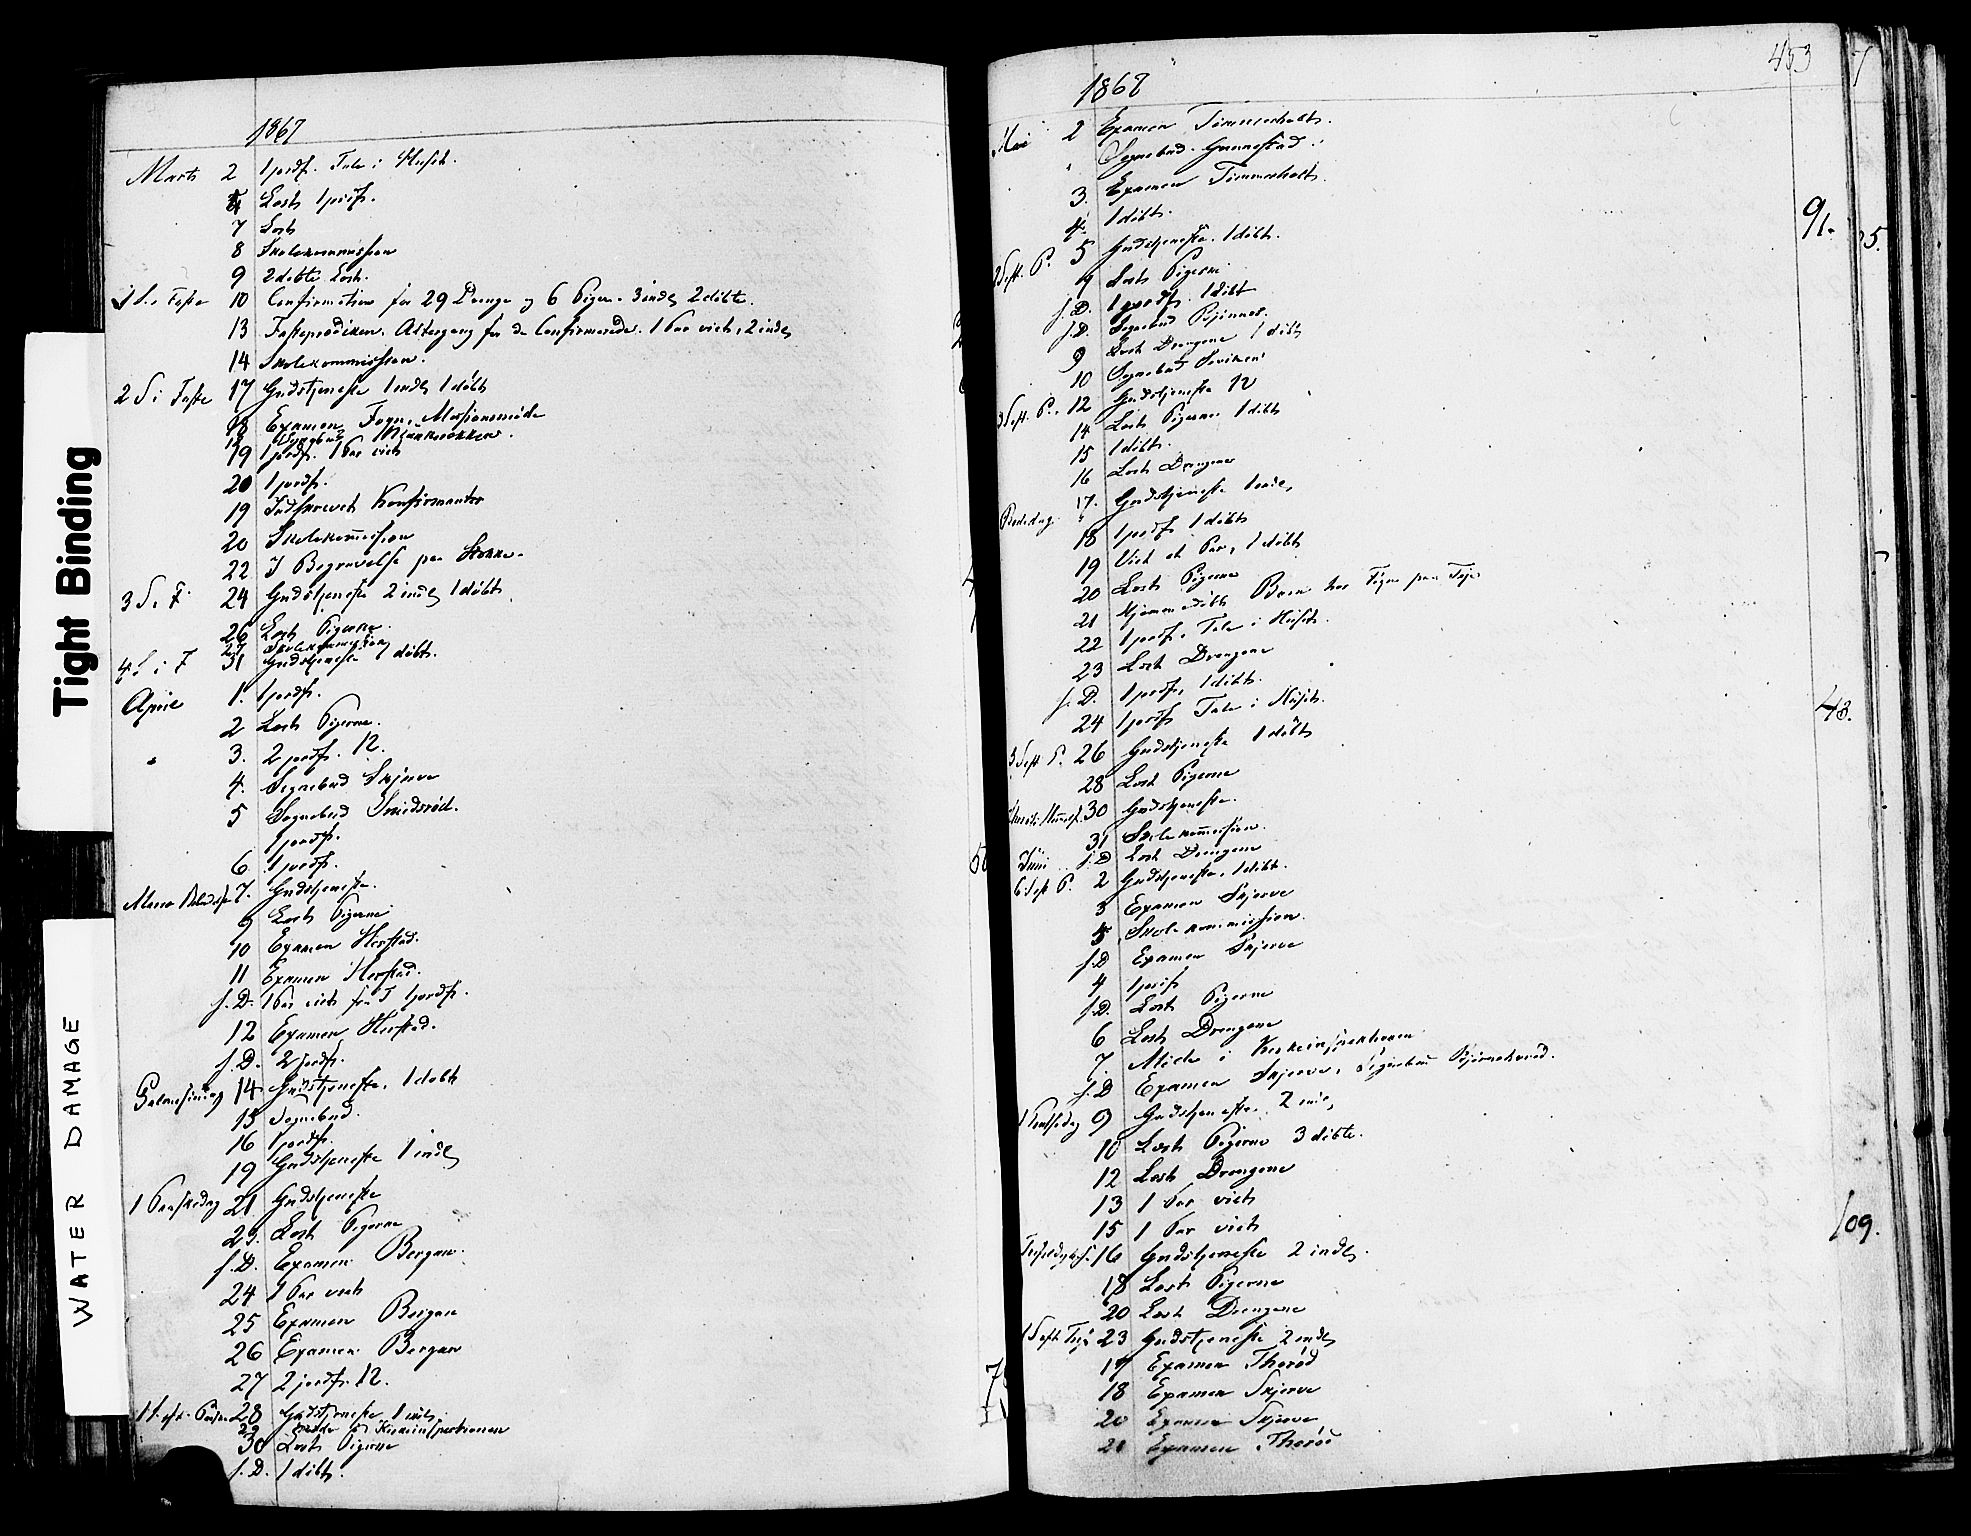 Tight Binding
WATER DAMAGE
1867
Marts 2 1 jordf. Tale i Huset.
4 Læst 1 jordf.
7 Læst
8 Skolekommission
9 2 døbte Læst.
1 S. i Faste 10 Confirmation for 29 Drenge og 6 Piger. 3 indl 2 døbte.
13 Fasteprædiken. Altergang for de Confirmerede. 1 Par viet, 2 indl
14 Skolekommission.
2 S i Faste 17 Gudstjeneste 1 indl 1 døbt
18 Examen Fogn, Missionsmøde
18 Sognebud
19 1 jordf. 1 Par viet
20 1 jordf.
19 Indskrevet Konfirmanter
20 Skolekommission
22 I Begravelse paa Stokke.
3 S. i F. 24 Gudstjeneste 2 indl 1 døbt
26 Læst Pigerne.
27 Skolekommission
4 S i F 31 Gudstjeneste 1 døbt.
April 1. 1 jordf.
2 Læst Pigerne.
3. 2 jordf. 12.
4. Sognebud Skjerve
5 Sognebud Smidsrød.
1 jordf.
6 1 jordf.
Mariæ Bebudelse 7. Gudstjeneste.
9 Læst Pigerne
10 Examen Herstad.
11 Examen Herstad.
s. D. 1 Par viet fra T 1 jordf.
12 Examen Herstad.
s. D. 2 jordf.
Palmesøndag 14 Gudstjeneste. 1 døbt
15 Sognebud.
16 1 jordf.
19 Gudstjeneste 1 indl
1 Paaskedag 21 Gudstjeneste
23. Læst Pigerne
s. D. Examen Bergan.
24 1 Par viet
25 Examen Bergan
26 Examen Bergan
27 2 jordf. 12.
1 S. eft. Paaske 28 Gudstjeneste 1 indl
29 Møde i Kirkeinspektionen
30 Læst Pigerne
s. D. 1 døbt.
1867
453
Mai 2 Examen Timmerholt.
" Sognebud. Gunnestad.
3. Examen Timmerholt.
4. 1 døbt.
2 S eft. P. 5 Gudstjeneste. 1 døbt.
9 Læst Pigerne
s. D. 1 jordf. 1 døbt
s. D. Sognebud
9 Læst Drengene 1 døbt
10 Sognebud
3 S eft. P. 12 Gudstjeneste 12
14 Læst Pigerne 1 døbt
15 1 døbt.
16 Læst Drengene
Bededag 17. Gudstjeneste 1 indl
18 1 jordf. 1 døbt
19 Viet et Par, 1 døbt
20 Læst Pigerne
21 Hjemmedøbt Barn hos
22 1 jordf. Tale i Huset.
23 Læst Drengene
s. D. 1 jordf. 1 døbt.
24 1 jordf. Tale i Huset.
3 S eft P. 26 Gudstjeneste 1 døbt
28 Læst Pigerne
Christi Himmelf. 30 Gudstjeneste.
31 Skolekommission.
Juni s. D Læst Drengene
6 S eft P. 2 Gudstjeneste. 1 døbt.
3 Examen Skjerve
5 Skolekommission.
s. D Examen Skjerve
4 1 jordf
s. D. Læst Pigerne
6 Læst Drengene
7. Møde i Kirkeinspektionen
s. D Examen Skjerve, Sognebud
1 Pintsedag 9 Gudstjeneste. 2 indl
10 Læst Pigerne 3 døbte.
12 Læst Drengene
13 1 Par viet
15 1 Par viet
16 Gudstjeneste 2 indl.
18 Læst Pigerne
20 Læst Drengene
1 S eft. Trin 23 Gudstjeneste 2 indl
17 Examen Thorød
18 Examen Skjerve
20 Examen Skjerve
21 Examen Thorød
91.
43.
109.